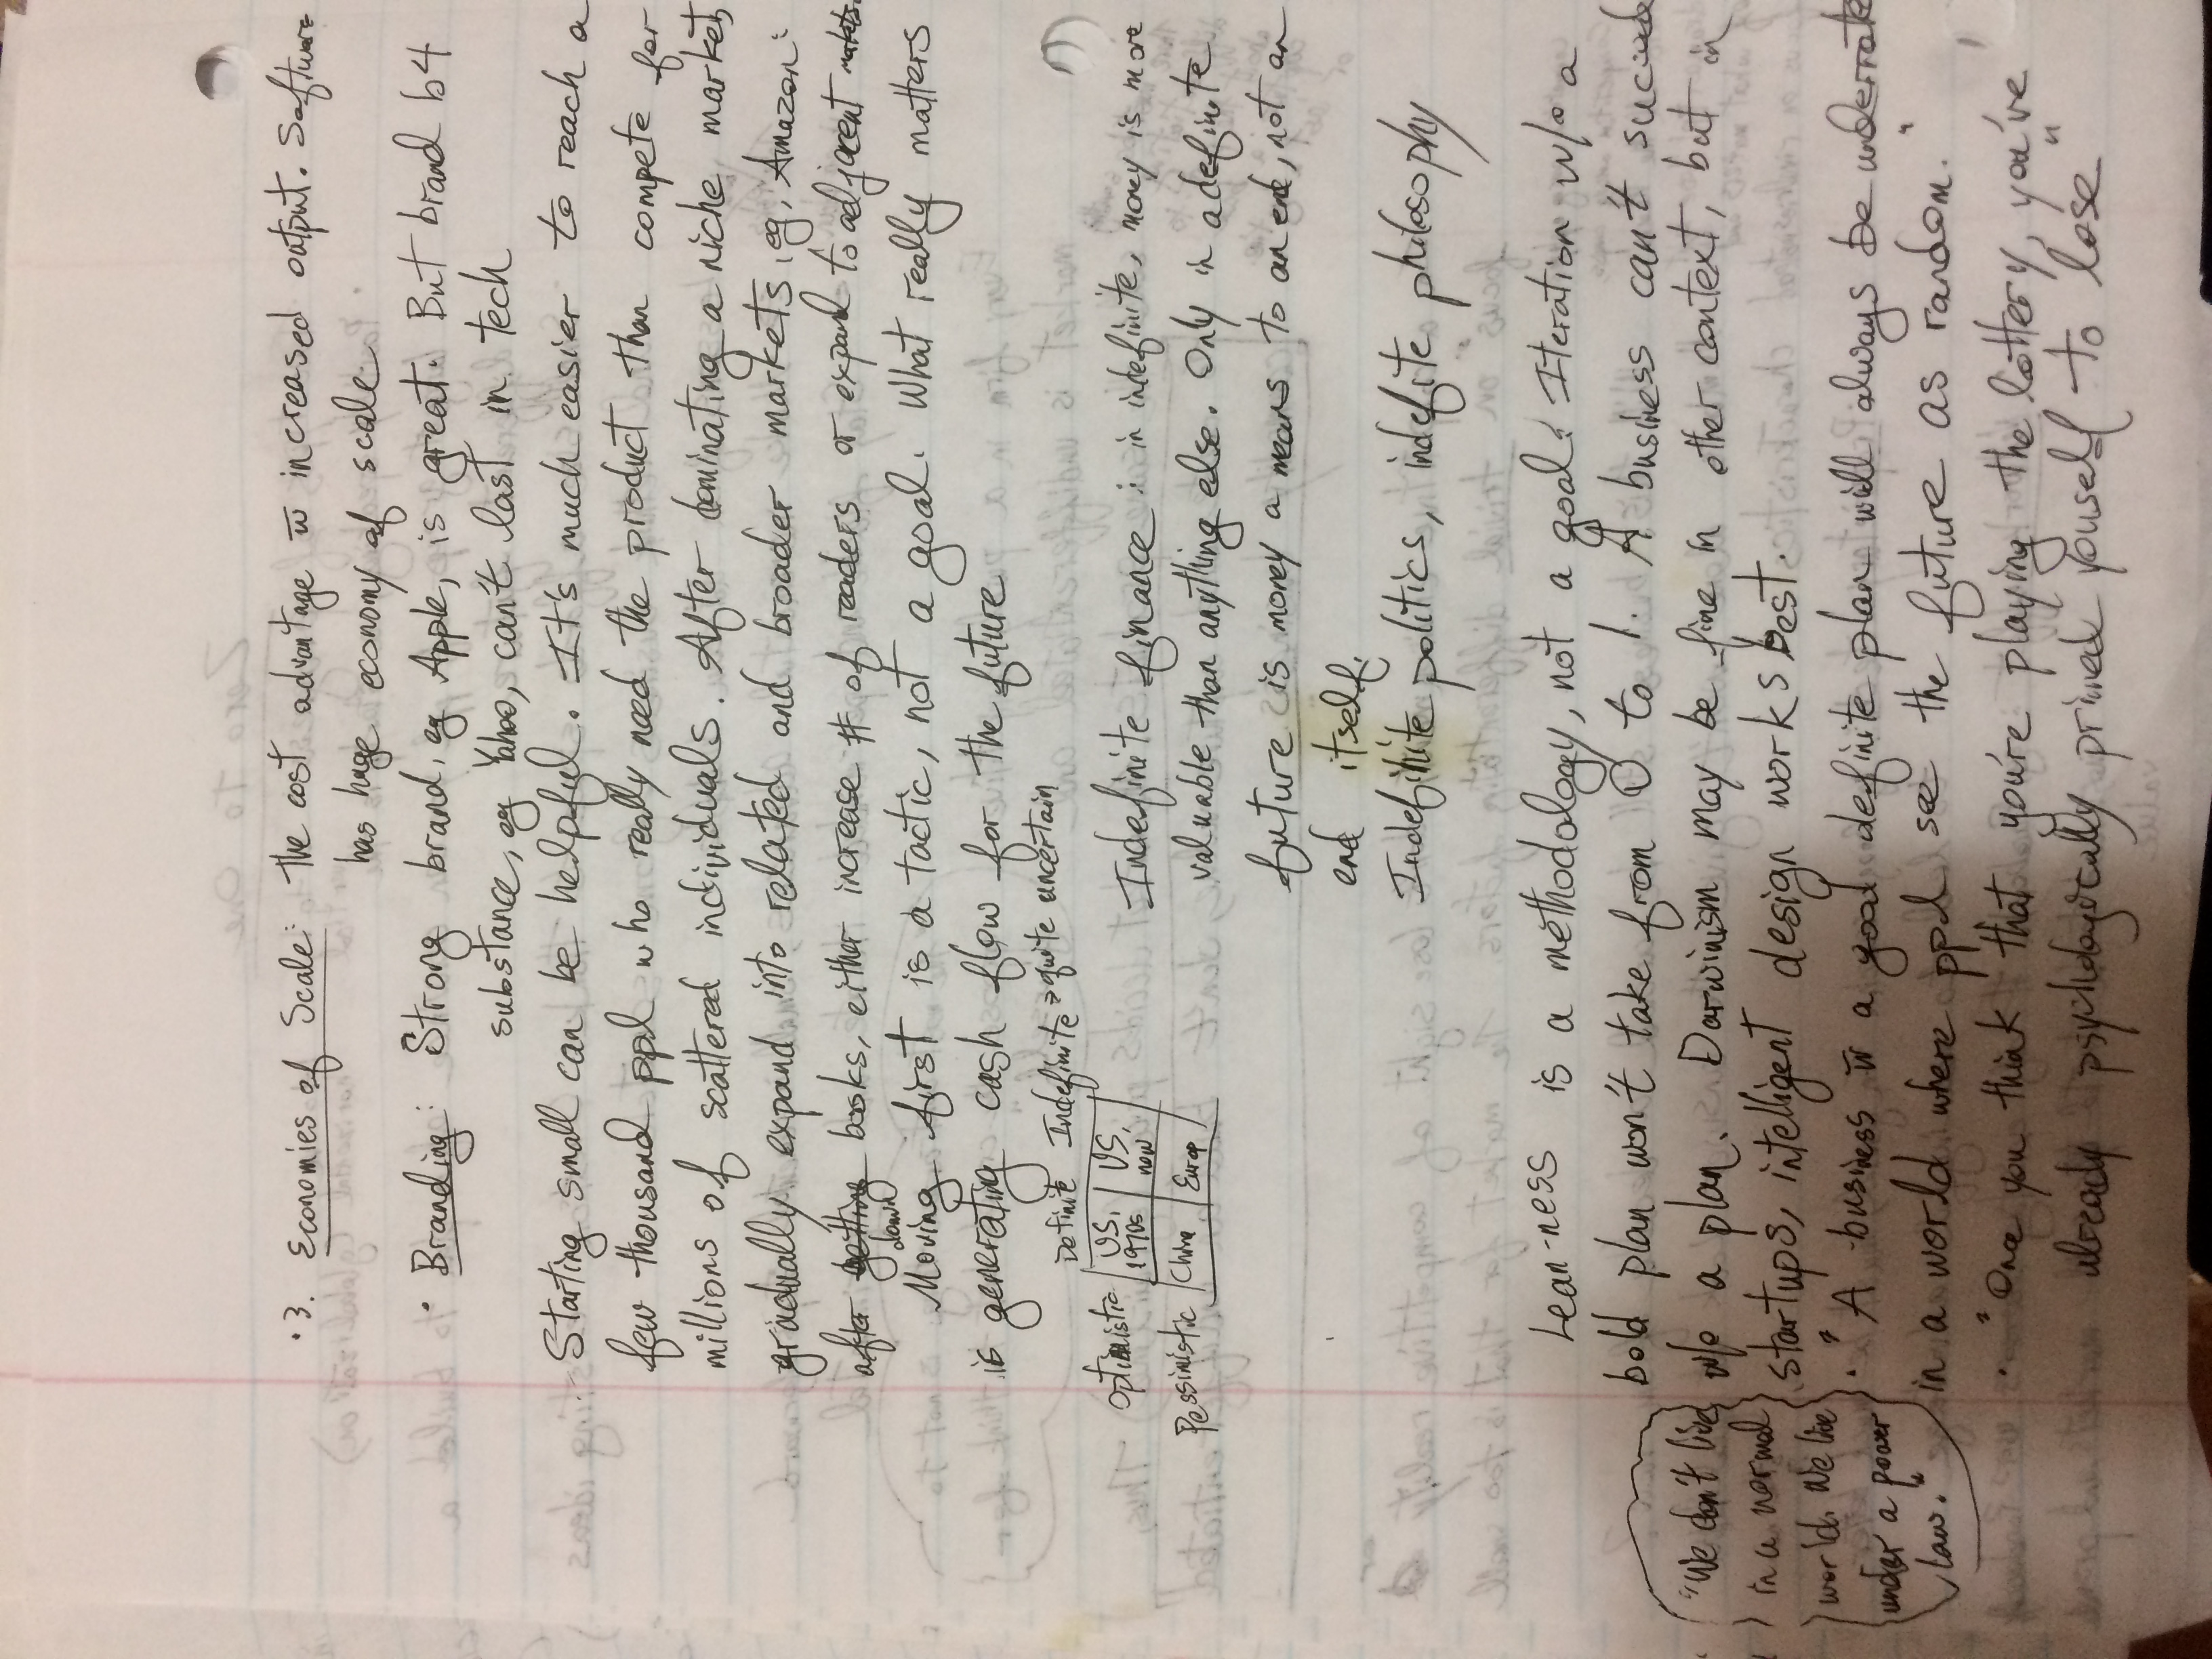 ·3. Economies of Scale: The cost advantage w̅ increased output. Software
has huge economy of scale.
· Branding: Strong brand, eg Apple, is great. But brand b4
substance, eg Yahoo, can't last in tech
- Starting small can be helpful. It's much easier to reach a
few thousand ppl who really need the product than compete for
millions of scattered individuals. After dominating a niche market,
gradually expand into related and broader markets, eg, Amazon:
after getting books, either increase # of readers or expand to adjacent markets.
down
Moving first is a tactic, not a goal. What really matters
is generating cash flow for the future
Definite Indefinite → quite uncertain
Optimistic US, 1970s US, now
Pessimistic China Europ
Indefinite finance: in indefinite, money is more
valuable than anything else. Only in a definite
future is money a means to an end, not an
end itself.
Indefinite politics, indefite philosophy
Lean-ness is a methodology, not a goal. Iteration w/o a
bold plan won't take from 0 to 1. A business can't succede
w/o a plan. Darwinism may be fine in other context, but in
startups, intelligent design works best.
"We don't live
in a normal
world. We live
under a power
law."
· "A business w̅ a good definite plan will always be underrate
in a world where ppl see the future as random."
· "Once you think that you're playing the lottery, you've
already psychologically primed youself to lose"
Zero to One